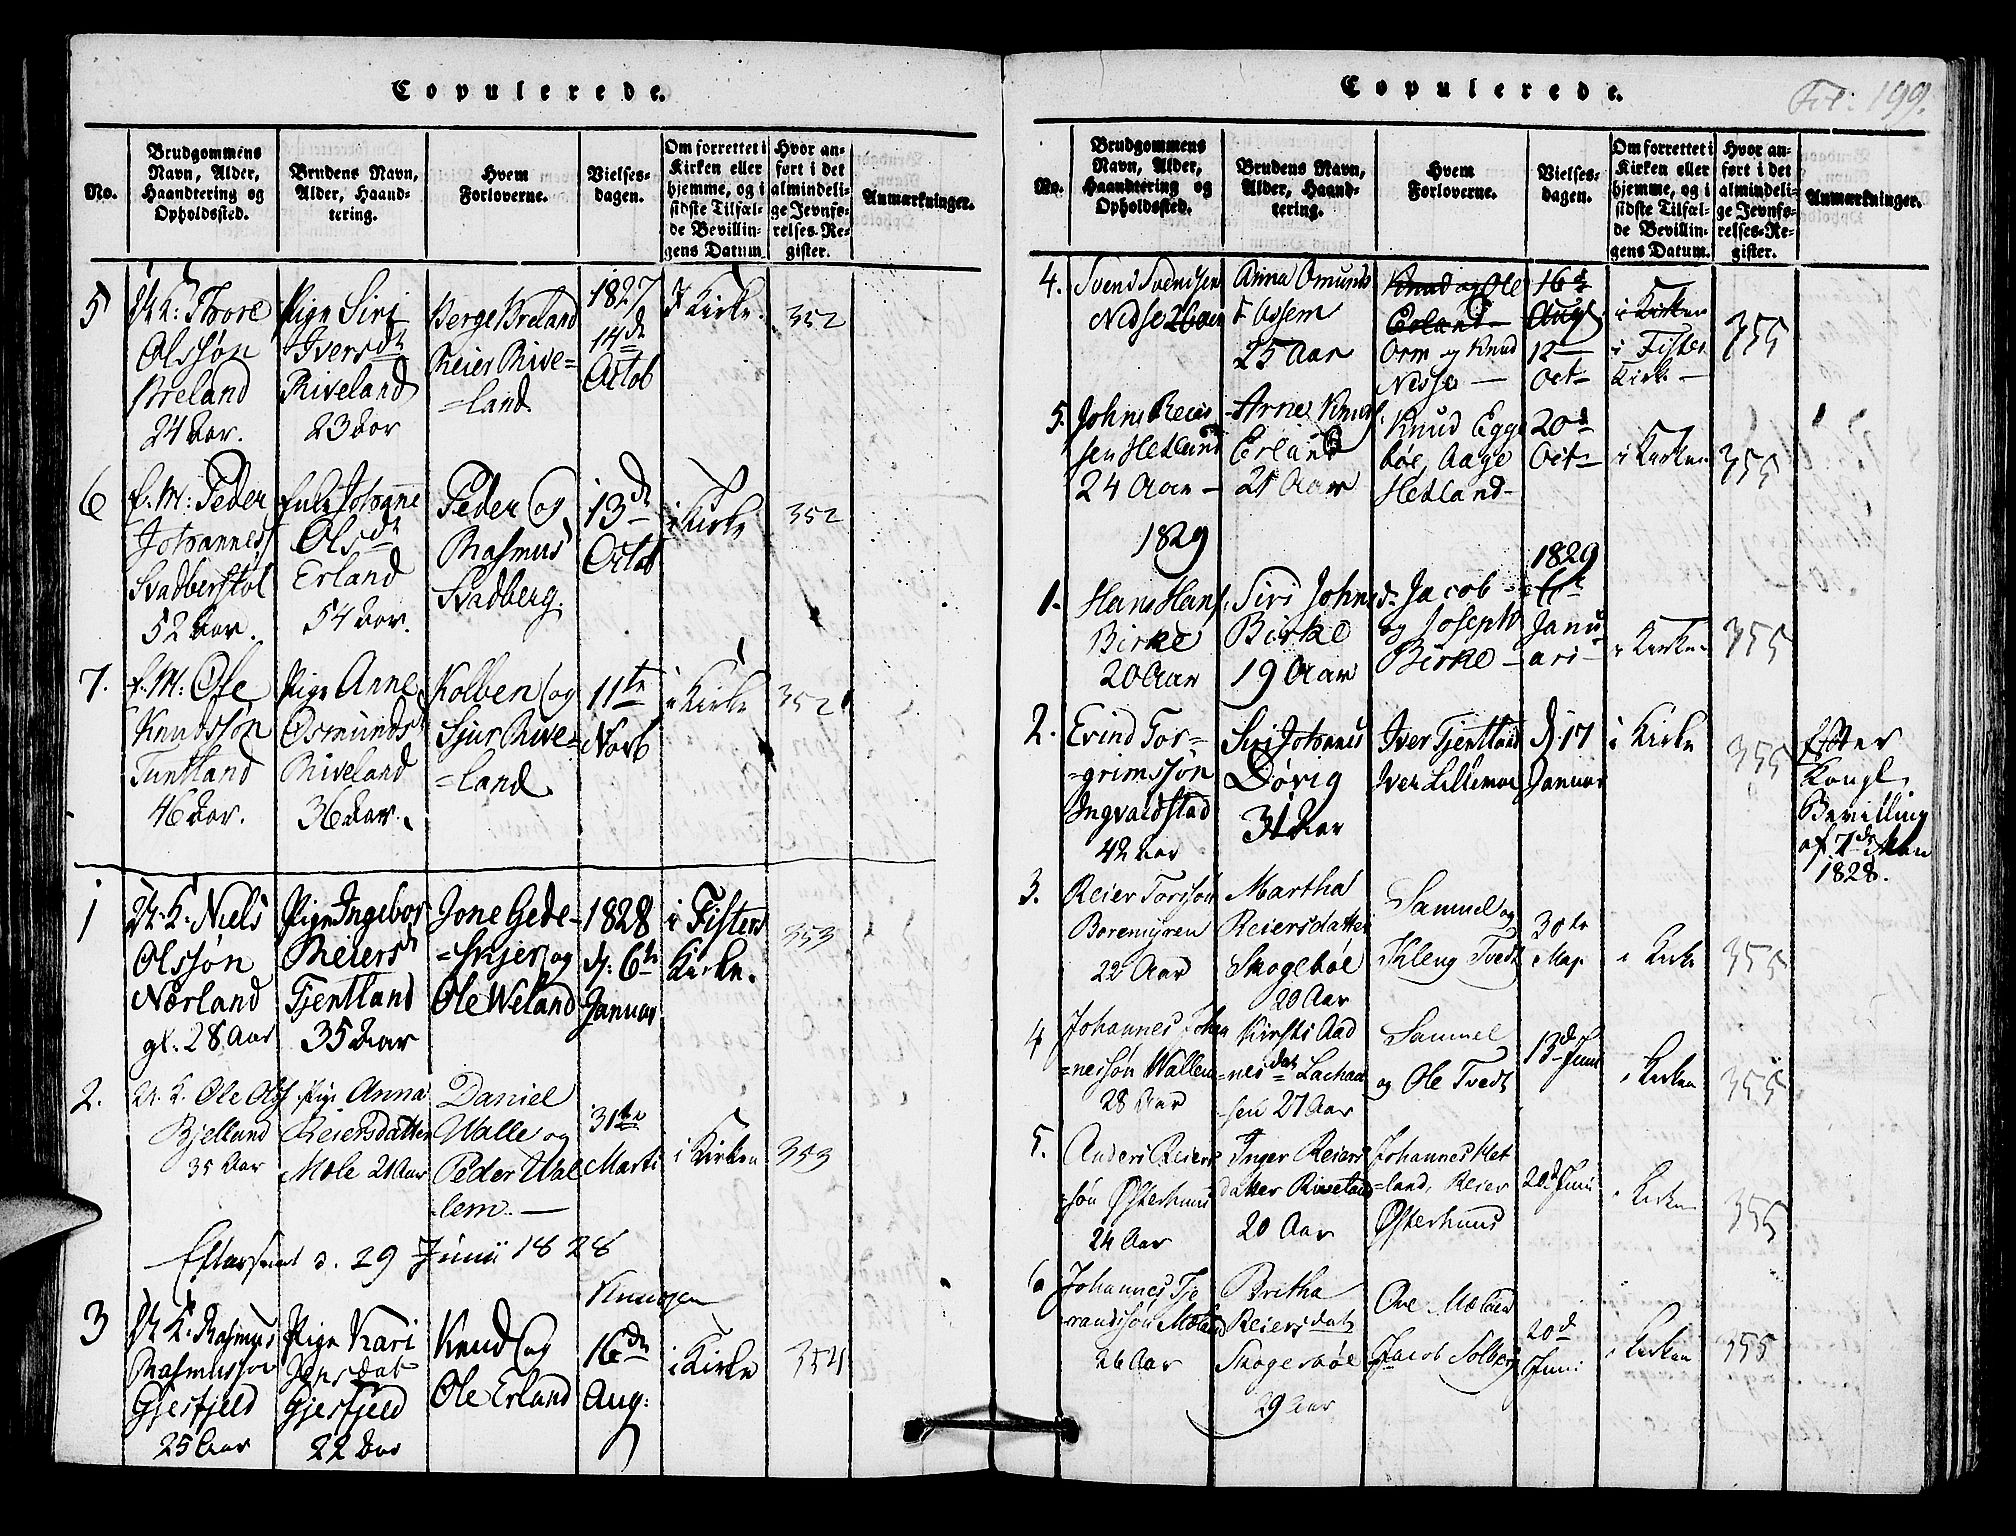 Copulerede.
No.
Brudgommens Navn, Alder, Haandtering og Opholdssted.
Brudens Navn, Alder, Haandtering.
Hvem Forloverne.
Vielsesdagen.
Om forrettet i Kirken eller hjemme, og i sidste Tilfælde Bevillingens Datum.
Hvor anført i det almindelige Jevnførelses-Register.
Anmærkninger.
5
U. K: Tore
Olssøn
Breland
24 Aar.
Pige Siri
Iversdt
Riveland
23 Aar
Berge Breland
Reier Rive=
=land.
1827
14de
Octob
I Kirke.
352
6
E. M: Peder
Johannes
Svadberstøl
52 Aar.
Enke Johanne
Olsdt
Erland
54 Aar.
Peder og
Rasmus
Svadberg.
13de
Octob
i Kirke
352
7.
E. M: Ole
Knudssøn
Tuntland
46 Aar.
Pige Anne
Osmundsdt
Riveland
36 Aar.
Kolben og
Sjur Rive=
=land.
11te
Novb
i Kirke
352
1
U. K. Niels
Olssøn
Nørland
gl. 28 Aar
Pige Ingebor
Reiersdt
Tjentland
35 Aar
Jone Gede=
=skjer og
Ole Weland
1828
d. 6te
Januar
i Fisters
Kirke.
353
2.
U. K. Ole Ols
Bjelland
35 Aar
Pige Anna
Reiersdatter
Mæle 21 Aar
Daniel
Walle og
Peder Uhl
=lem. —
31te
Marti
i Kirken
353
Efterseet d. 29 Junii 1828
Knudsen
3
U. K. Rasmus
Rasmussøn
Gjesfjeld
25 Aar
Pige Kari
Jensdat
Gjesfjeld
22 Aar
Knud og
Ole Erland
16de
Aug:
i Kirke
354
Copulerede.
Fol: 199.
No.
Brudgommens Navn, Alder, Haandtering og Opholdssted.
Brudens Navn, Alder, Haandtering.
Hvem Forloverne.
Vielsesdagen.
Om forrettet i Kirken eller hjemme, og i sidste Tilfælde Bevillingens Datum.
Hvor anført i det almindelige Jevnførelses-Register.
Anmærkninger.
4.
Svend Svendsen
Nedse 26 Aar
Anna Omunds
25 Aar
Knud og Ole
Erland —
Orm og Knud
Nesse —
16de
Aug
12
Oct
i Kirken
i Fister
Kirke —
355
5.
Johns Reier
sen Hetland
24 Aar —
Arne Knuds
Erland
21 Aar
Knud Egge
bøe, Aage
Hetland —
20d
Oct
i Kirken
355
1829
1829
1.
Hans Hans
Birke
20 Aar
Siri Johns d.
Birke
19 Aar
Jacob
og Joseph
Birke —
Janu
ari —
i Kirken
355
2.
Evind Tor=
=grimssøn
Ingvaldstad
42 Aar
Siri Johannes
Døvig
31 Aar
Iver Tjentland
Iver Lillemoe
d. 17
Januar
i Kirke
355
Efter
Kongl.
Bevilling
af 7de
1828.
3.
Reier Torssøn
Boremyren
22 Aar
Martha
Reiersdatter
Skogebøe
20 Aar
Samuel og
Kleng Tvedt
30te
May
i Kirke
355
4
Johannes Johan
=nessøn Wallem
28 Aar
Kirsti Aad
=nesdat Lachaa
sen 27 Aar
Samuel
og Ole Tvedt
13d Juni
i Kirken
355
5.
Anders Reiers
=søn Østerhuus
24 Aar
Inger Reiers
datter Riveland
20 Aar
Johannes Het
=land, Reier
Østerhuus
20d Juni
i Kirken
355
6
Johannes Tje
randssøn Mæland
26 Aar
Britha
Reiersdat
Skogesbøe
29 Aar
Ove Mæland
Jacob Solberg
20d
Juni
i Kirken
355